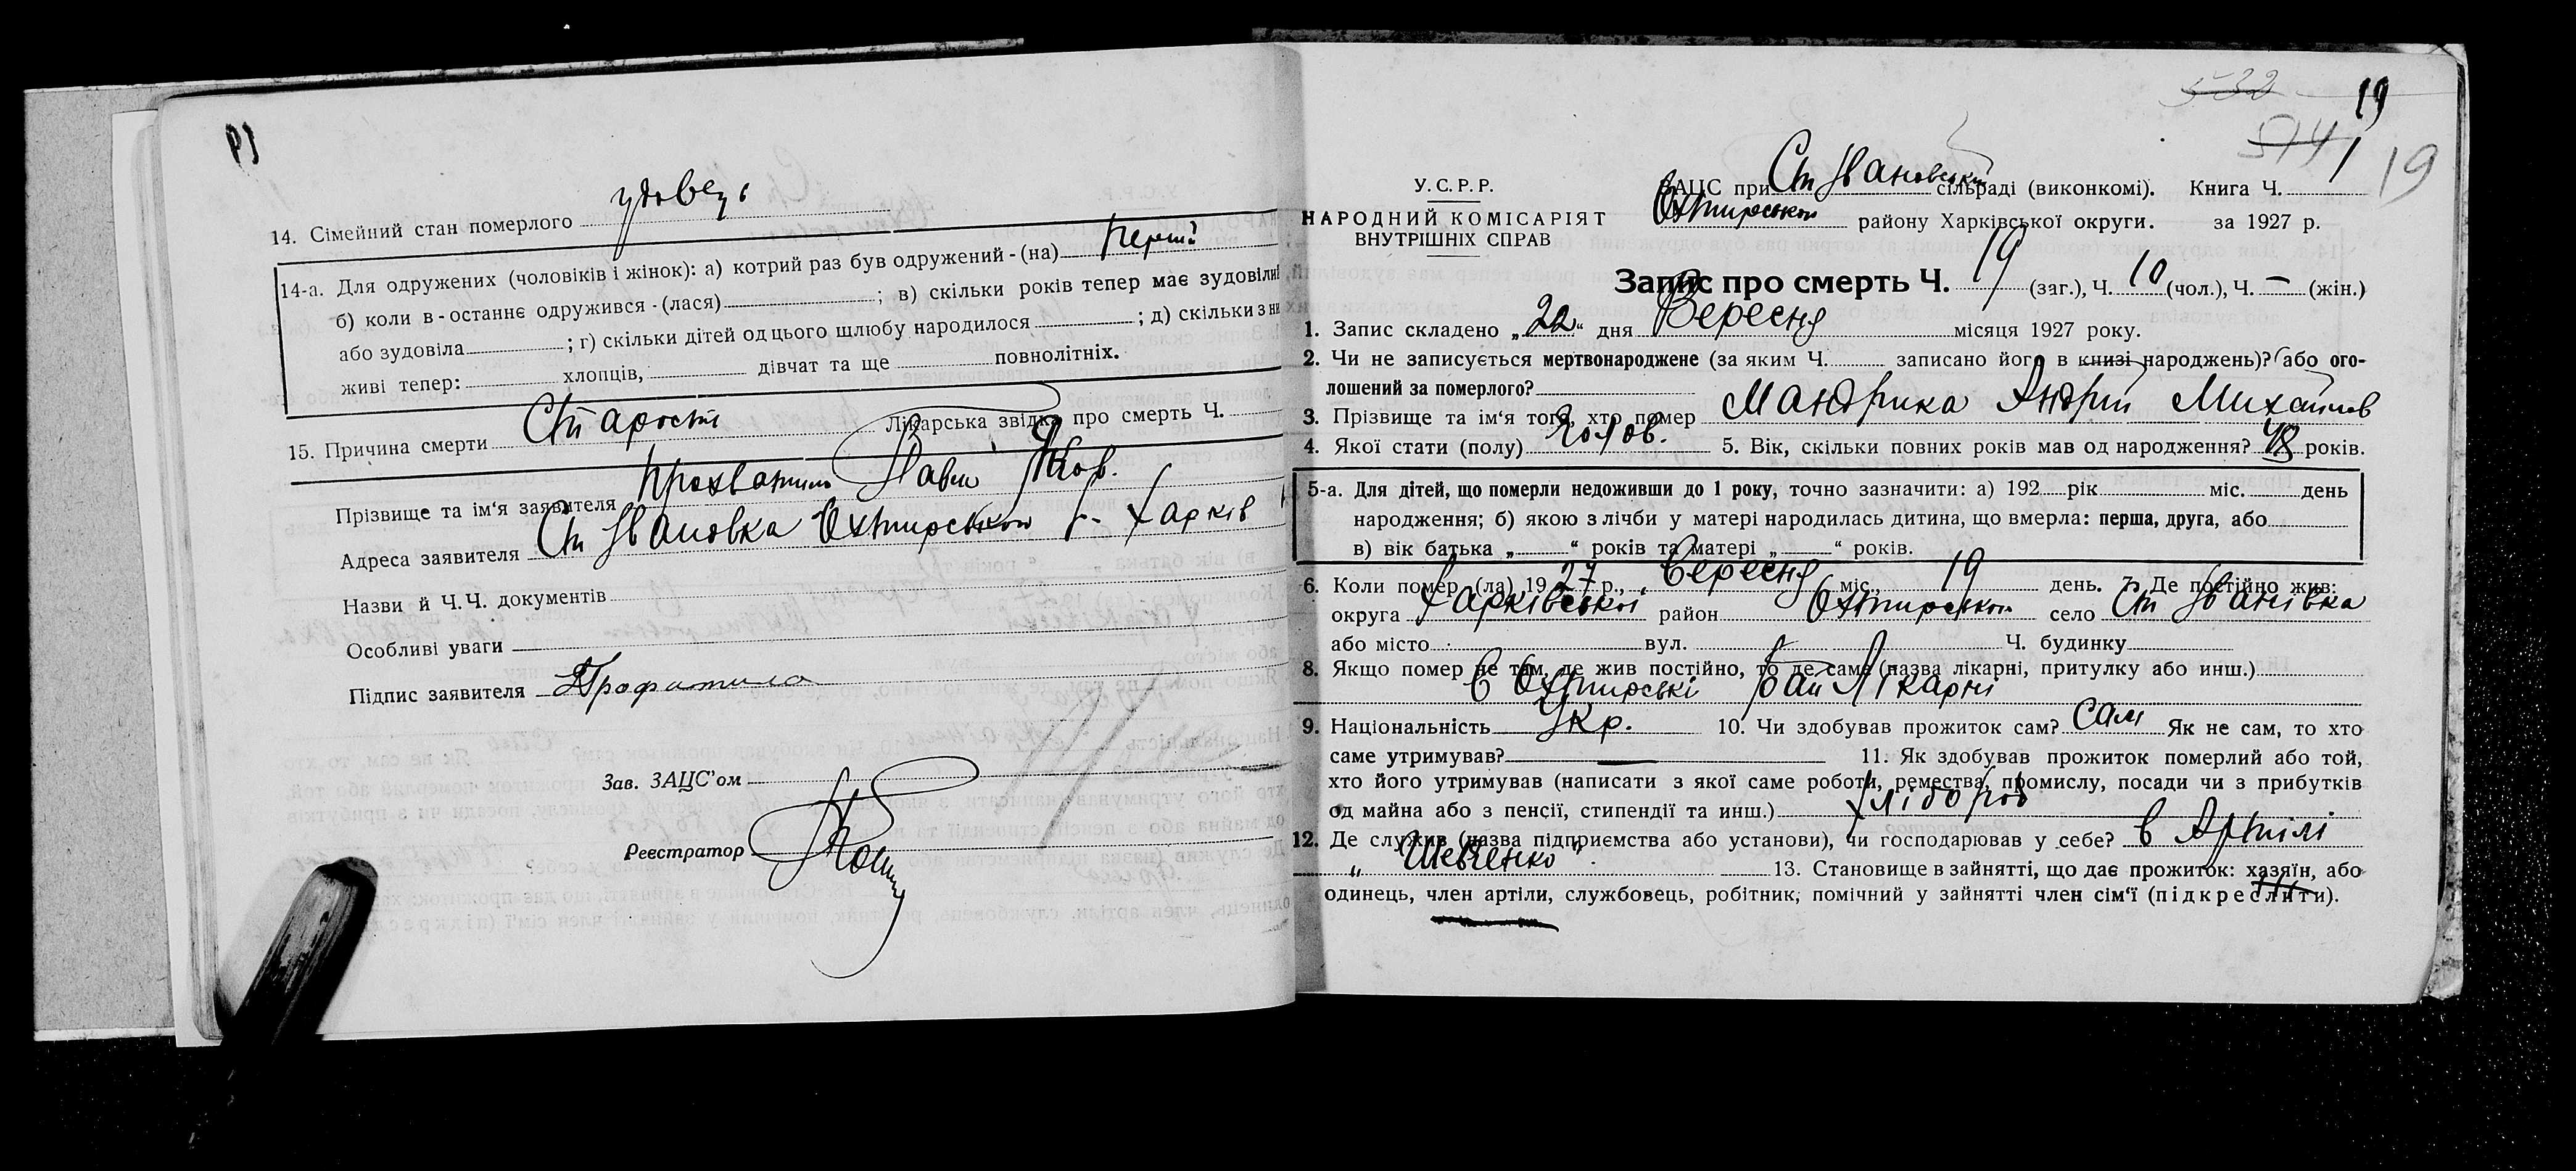 14. Сімейний стан померлого удовець
14-а. Для одружених (чоловіків і жінок): а) котрий раз був одружений - (на) перший
б) коли в-останнє одружився - (лася) ; в) скільки років тепер має зудовілий
або зудовіла ; г) скільки дітей од цього шлюбу народилося ; д) скільки з ни
живі тепер: хлопців, дівчат та ще повнолітніх.
15. Причина смерти Старости Лікарська звідка про смерть Ч.
Прізвище та ім‘я заявителя Павло Яков.
Адреса заявителя Ст Івановка Охтирського р. Харків
Назви й Ч.Ч. документів
Особливі уваги
Підпис заявителя
Зав. ЗАЦС’ом
Реєстратор
532 19
574 19
У.С.Р.Р.
НАРОДНИЙ КОМІСАРІЯТ
ВНУТРІШНІХ СПРАВ
ЗАЦС при Ст Івановській сільраді (виконкомі). Книга Ч. 1
Охтирського району Харківської округи. за 1927 р.
Запис про смерть Ч. 19 (заг.), Ч. 10 (чол.), Ч. – (жін.)
1. Запис складено „22“ дня Вересня місяця 1927 року.
2. Чи не записується мертвонароджене (за яким Ч. записано його в книзі народжень)? або ого-
лошений за померлого?
3. Прізвище та ім‘я того, хто помер Мандрика Андрій Михайлов
4. Якої стати (полу) Чолов. 5. Вік, скільки повних років мав од народження? 48 років.
5-а. Для дітей, що померли недоживши до 1 року, точно зазначити: а) 192 рік міс. день
народження; б) якою з лічби у матері народилась дитина, що вмерла: перша, друга, або
в) вік батька „ “ років та матері „ “ років.
6. Коли помер (ла) 1927 р., Вересня міс., 19 день. 7. Де постійно жив:
округа Харківської район Охтирського село Ст Іванівка
або місто вул. Ч. будинку
8. Якщо помер не там, де жив постійно, то де саме (назва лікарні, притулку або инш.)
в Охтирські Рай Лікарні
9. Національність Укр. 10. Чи здобував прожиток сам? Сам Як не сам, то хто
саме утримував? — 11. Як здобував прожиток померлий або той,
хто його утримував (написати з якої саме роботи, ремества, промислу, посади чи з прибутків
од майна або з пенсії, стипендії та инш.) Хлібороб
12. Де служив (назва підприємства або установи), чи господарював у себе? в Артілі
„Шевченко“. 13. Становище в зайнятті, що дає прожиток: хазяїн, або
одинець, член артіли, службовець, робітник, помічний у зайнятті член сім‘ї (підкреслити).